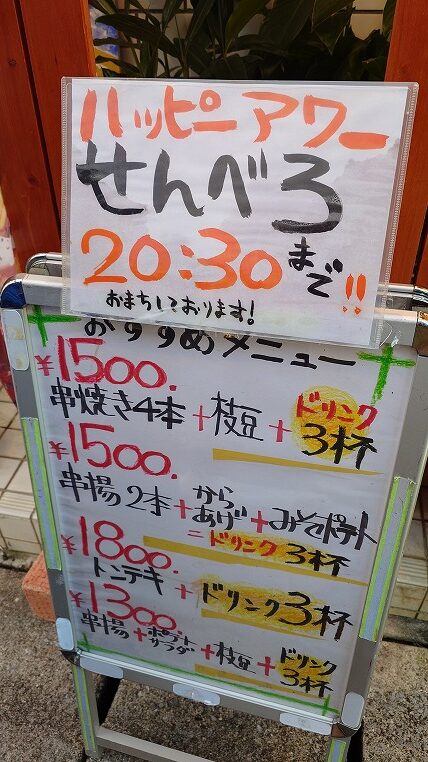 ハッピーアワー
せんべろ
20:30まで!!
おまちしております!
おすすめメニュー
¥1500.
串焼き4本+枝豆+ドリンク3杯
¥1500.
串揚2本+からあげ+みそポテト
=ドリンク3杯
¥1800.
トンテキ+ドリンク3杯
¥1300.
串揚+ポテトサラダ+枝豆+ドリンク3杯